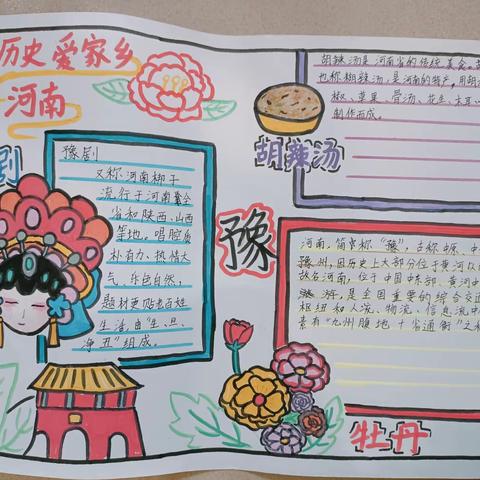 历史 爱家乡
河南
剧
豫剧
又称河南梆子
流行于河南全
省和陕西、山西
等地。唱腔质
朴有力,热情大
气,乐色自然,
题材更贴老百姓
生活,由“生、旦、
净、丑”组成。
胡辣汤是河南省的传统美食。
也称糊辣汤,是河南的特产,用胡
椒、草果、骨汤、花生、木耳
制作而成。
胡辣汤
豫
河南,简称“豫”,古称中原、中
豫州,因历史上大部分位于黄河以
故名河南,位于中国中东部、黄河中
游,是全国重要的综合交通
枢纽和人流、物流、信息流中
素有“九州腹地 十省通衢”之
牡丹